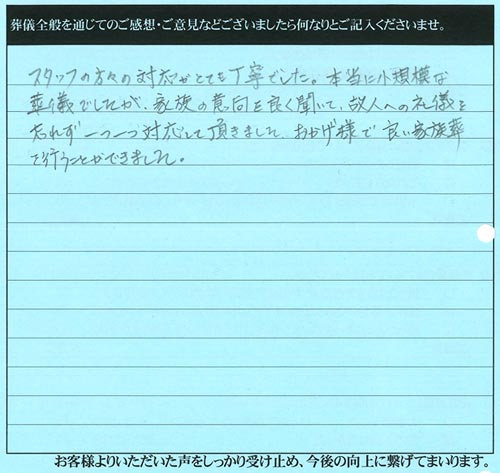 葬儀全般を通じてのご感想・ご意見などございましたら何なりとご記入くださいませ。
スタッフの方々の対応がとても丁寧でした。本当に小規模な
葬儀でしたが、家族の意向を良く聞いて、故人への礼儀を
忘れず一つ一つ対応して頂きました。おかげ様で良い家族葬
を行うことができました。
お客様よりいただいた声をしっかり受け止め、今後の向上に繋げてまいります。